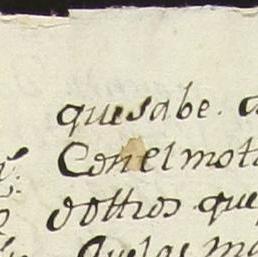 que sabe.
Con el mot
dottros que
que las